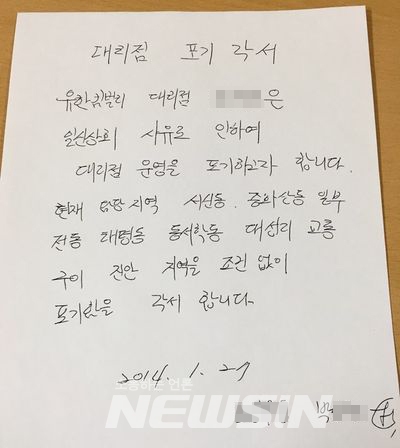 대리점 포기 각서
유한킴벌리 대리점 은
일신상의 사유로 인하여
대리점 운영을 포기하고자 합니다.
현재 담당지역 서신동. 중화산동 일부
전동 태평동 동서학동 대성리 교동
구이 진안 지역을 조건 없이
포기함을 각서 합니다.
2014. 1. 27
박
NEWSIN